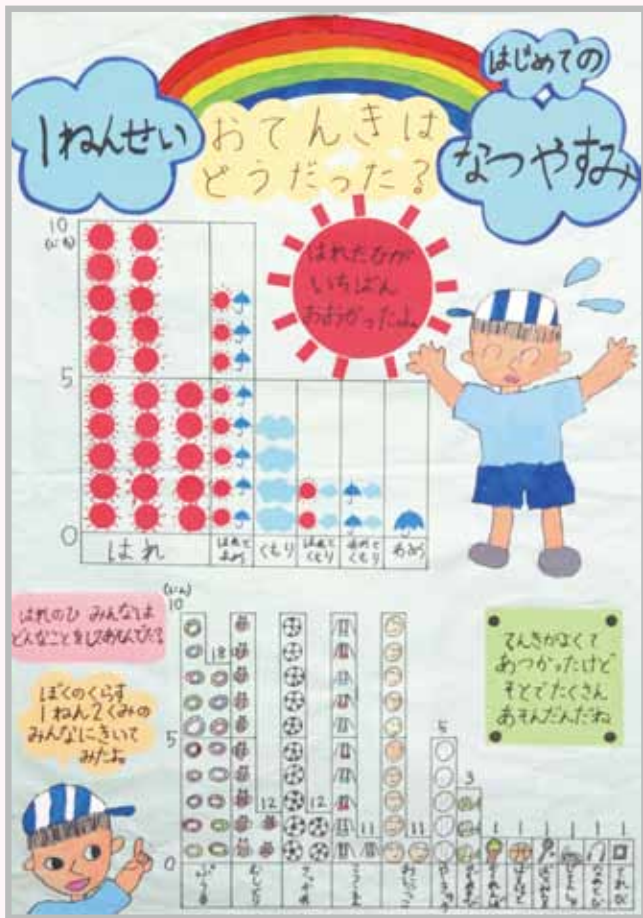 はじめての
1ねんせい
おてんきは
どうだった?
なつやすみ
10
(にち)
5
0
はれたひが
いちばん
おおかったよ。
はれ
はれと
あめ
くもり
はれと
くもり
あめと
くもり
あめ
はれのひ みんなは
どんなことをしてあそんでた?
ぼくのくらす
1ねん2くみの
みんなにきいて
みたよ。
てんきがよくて
あつかったけど
そとでたくさん
あそんだんだね
(にん)
10
5
0
18
12
12
11
11
5
3
1
1
1
1
1
1
ぷうる
むしとり
さっかあ